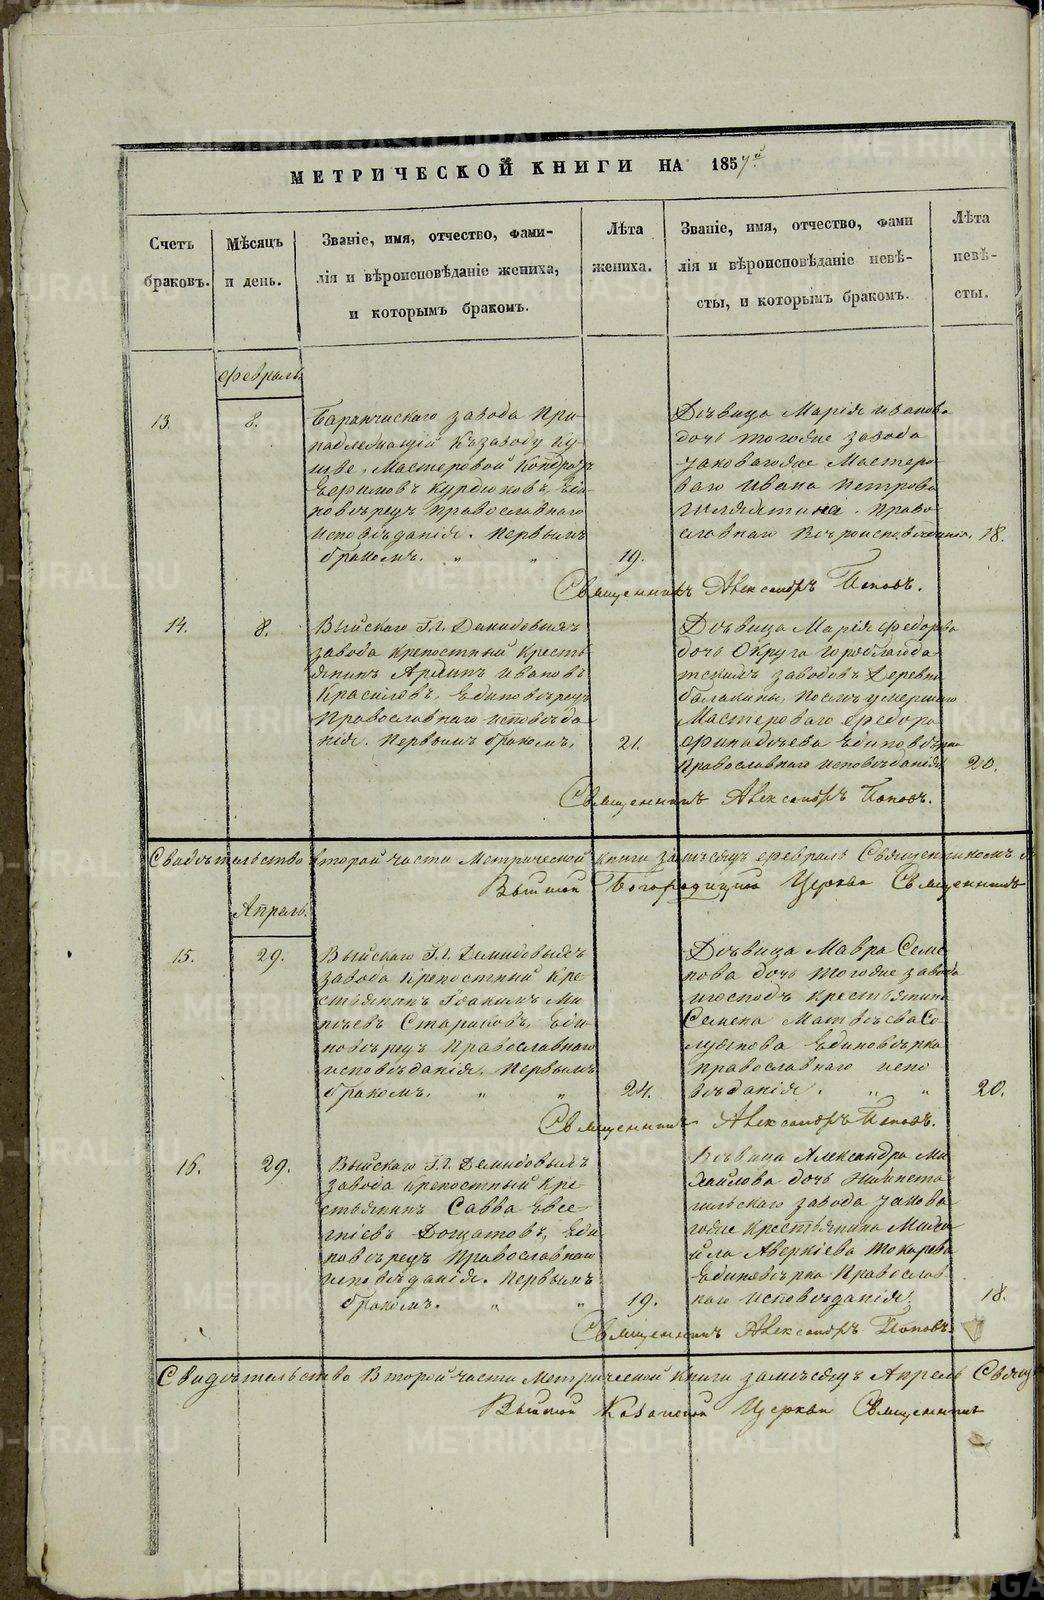 МЕТРИЧЕСКОЙ КНИГИ НА 1857й
Счетъ браковъ.
Мѣсяцъ и день.
Званіе, имя, отчество, фами-
лія и вѣроисповѣданіе жениха,
и которымъ бракомъ.
Лѣта жениха.
Званіе, имя, отчество, фами
лія и вѣроисповѣданіе невѣ-
сты, и которымъ бракомъ.
Лѣта невѣ-
сты.
Февраль.
13.
8.
Баранчискаго завода При-
надлежащій Къ заводу Ку-
шве, Мастеровой Кондратъ
Ефимовъ Курдюковъ, Еди-
новѣрецъ Православнаго
Исповѣданія. Первымъ
бракомъ. „ „
19.
Дѣвица Марія иванова
дочь тогоже завода
таковагоже Мастеро-
ваго Ивана Петрова
Право-
славнаго Вѣроисповѣданія.
18.
Священникъ Александръ Поповъ.
14.
8.
Выйскаго Г.г. Демидовыхъ
завода крепостный Кресть
янинъ ивановъ
Красиловъ, Единовѣрецъ
Православнаго исповѣда-
нія. Первымъ бракомъ.
21.
Дѣвица Марія Федорова
дочь Округа Гороблагода
тскихъ заводовъ Деревни
балакины, Послѣ умершаго
Мастероваго Федора
Единовѣрка
Православнаго исповѣданія
20.
Священникъ Александръ Поповъ.
Свидѣтельство второй части Метрической книги замѣсяцъ февраль Священникомъ
Выйской Богородицкой Церкви Священникъ
Апрель.
15.
29.
Выйскаго Г.г. Демидовыхъ
завода Крепостный Кре
стьянинъ Іоакимъ Ми
нѣевъ Стариковъ, Еди-
новѣрецъ Православнаго
исповѣданія. Первымъ
бракомъ. „ „
24.
Дѣвица Мавра Семе
нова дочь тогоже завода
игосподъ крестьянина
Семена Матвѣева Со-
Единовѣрка
православнаго испо
вѣданія. „ „
20.
Священникъ Александръ Поповъ.
16.
29.
Выйскаго Г.г. Демидовыхъ
завода крепостный Кре
стьянинъ Савва Евсе-
гніевъ Еди
новѣрецъ Православнаго
исповѣданія. Первымъ
бракомъ. „ „
19.
Дѣвица Александра Ми
хайлова дочь Нижнета-
гильскаго завода такова
гоже Крестьянина Михай-
йла Аверкіева Токарева
Единовѣрка Православ
наго исповѣданія.
18.
Священникъ Александръ Поповъ.
Свидѣтельство Второй части Метрической книги замѣсяцъ Апрель
Выйской Казанской Церкви Священникъ
METRIKI.GASO-URAL.RU